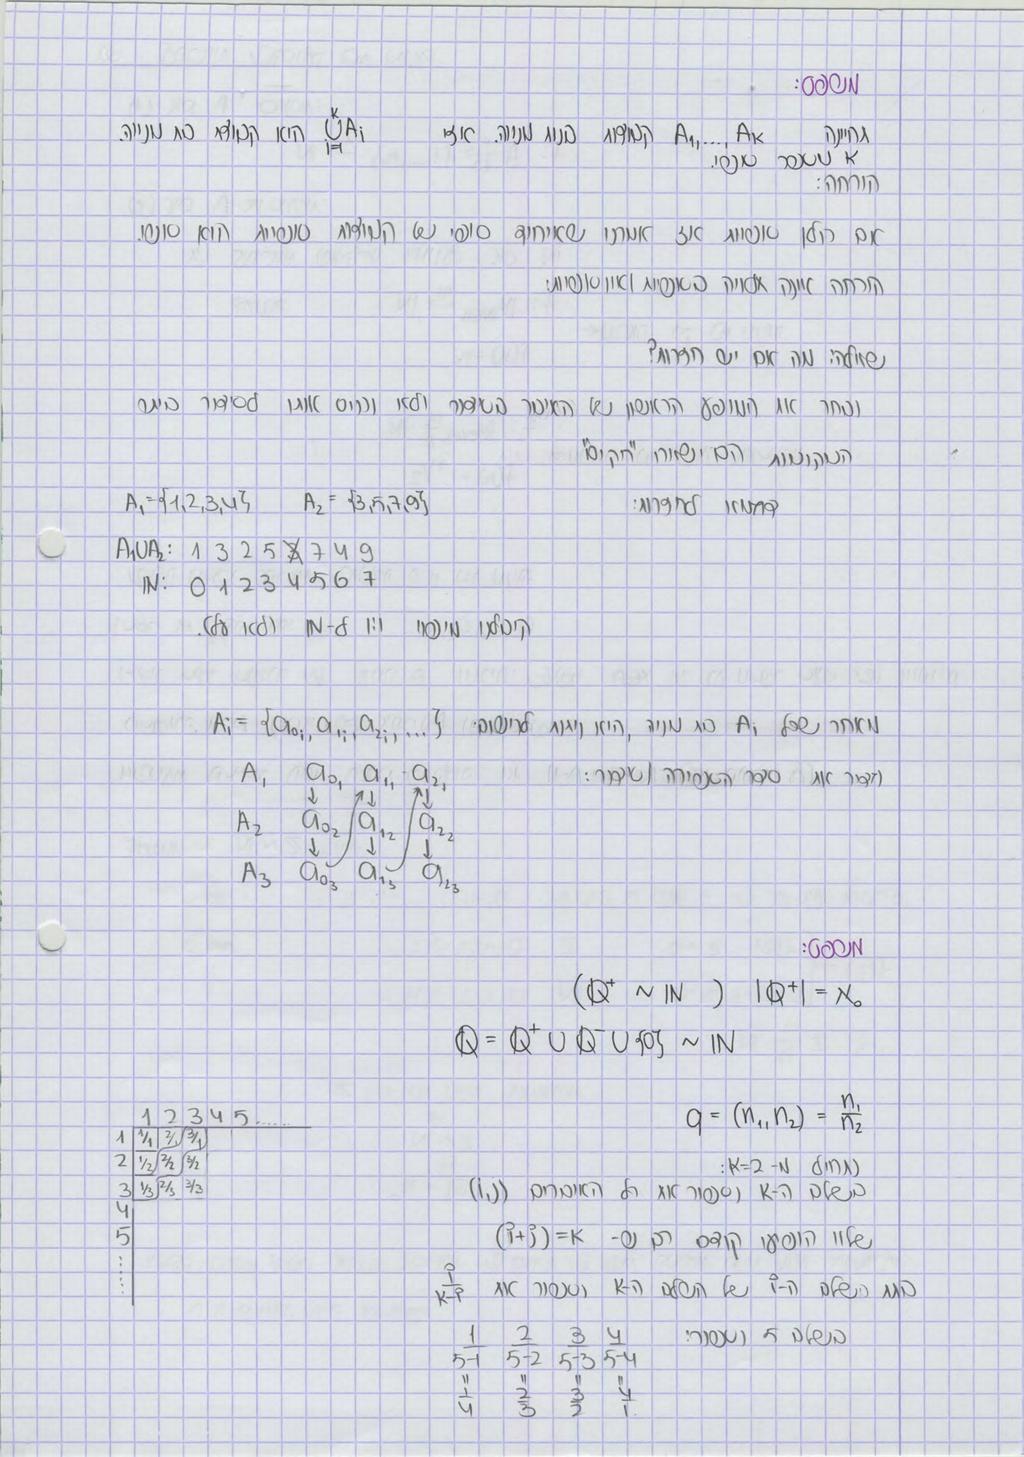 משפט:
תהיינה A₁,...,Aₖ קבוצות בנות מנייה. אזי ⋃ᵢ₌₁ᴷ Aᵢ היא קבוצה בת מנייה.
K מספר סופי.
הוכחה:
אם כולן סופיות אז אמרנו שאיחוד סופי של קבוצות סופיות הוא סופי.
הוכחה איננה תלויה בסופיות/אין סופיות:
שאלה: מה אם יש חזרות?
נבחר את המופע הראשון של האיבר בסידור ולא נכניס אותו לסידור ביתר
המקומות הם ישארו "חקים"
דוגמא לחזרות: A₁={1,2,3,4} A₂={3,5,7,9}
A₁∪A₂: 1 3 2 5 3 7 4 9
ℕ: 0 1 2 3 4 5 6 7
קיבלנו מיפוי 1:1 ל-ℕ (לא על).
מאחר שכל Aᵢ בת מניה, היא ניתנת לרישום: Aᵢ={a₀ᵢ, a₁ᵢ, a₂ᵢ, ...}
נסדר את סדר הספירה/סידור:
A₁ a₀₁ a₁₁ a₂₁
A₂ a₀₂ a₁₂ a₂₂
A₃ a₀₃ a₁₃ a₂₃
משפט:
(ℚ⁺ ~ ℕ) |ℚ⁺| = ℵ₀
ℚ = ℚ⁺ ∪ ℚ⁻ ∪ {0} ~ ℕ
q = (n₁,n₂) = n₁/n₂
1 2 3 4 5 ......
1 1/1 2/1 3/1
2 1/2 2/2 3/2
3 1/3 2/3 3/3
4
5
⋮
נתחיל מ-K=2:
בשלב ה-K נספור את כל האיברים (i,j)
שלא הופיעו קודם כך ש- K=(i+j)
בתת השלב ה-i של השלב ה-K נספור את i/K-i
בשלב 5 נספור: 1/5-1 2/5-2 3/5-3 4/5-4
" " " "
1/4 2/3 3/2 4/1